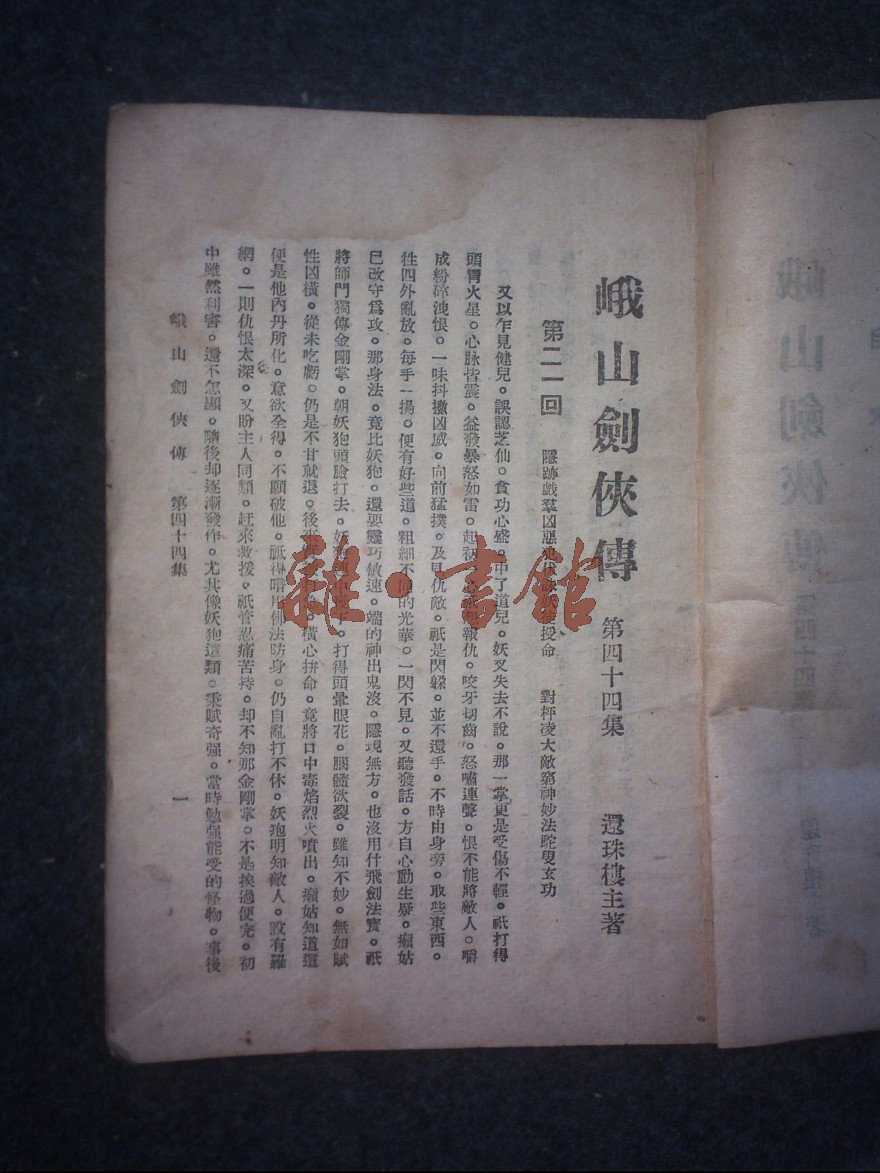 峨山劍俠傳 第四十四集 還珠樓主著
第二一回 隱跡戲羣凶惡犯 授命 對枰凌大敵窮神妙法駝叟玄功
又以乍見健兒。誤認芝仙。貪功心盛。中了道兒。妖叉失去不說。那一掌更是受傷不輕。祇打得
頭冒火星。心脉皆震。益發暴怒如雷。起 報仇。咬牙切齒。怒嘯連聲。恨不能將敵人。嚼
成粉碎洩恨。一味抖擻凶威。向前猛撲。及見仇敵。祇是閃躲。並不還手。不時由身旁。取些東西。
往四外亂放。每手一揚。便有好些道。粗細不同的光華。一閃不見。又聽發話。方自心動生疑。癩姑
已改守爲攻。那身法。竟比妖狍。還要靈巧敏速。端的神出鬼沒。隱現無方。也沒用什飛劍法寶。祇
將師門獨傳金剛掌。朝妖狍頭臉打去。妖狍連中 下。打得頭暈眼花。腦髓欲裂。雖知不妙。無如賦
性凶橫。從未吃虧。仍是不甘就退。後來 橫心拼命。竟將口中毒焰烈火噴出。癩姑知道這
便是他內丹所化。意欲全得。不願破他。祇得暗用佛法防身。仍自亂打不休。妖狍明知敵人。設有羅
網。一則仇恨太深。又盼主人同類。赶來救援。祇管忍痛苦持。却不知那金剛掌。不是挨過便完。初
中雖然利害。還不怎顯。隨後却逐漸發作。尤其像妖狍這類。秉賦奇强。當時勉强能受的怪物。事後
峨山劍俠傳 第四十四集 一
雜·書館